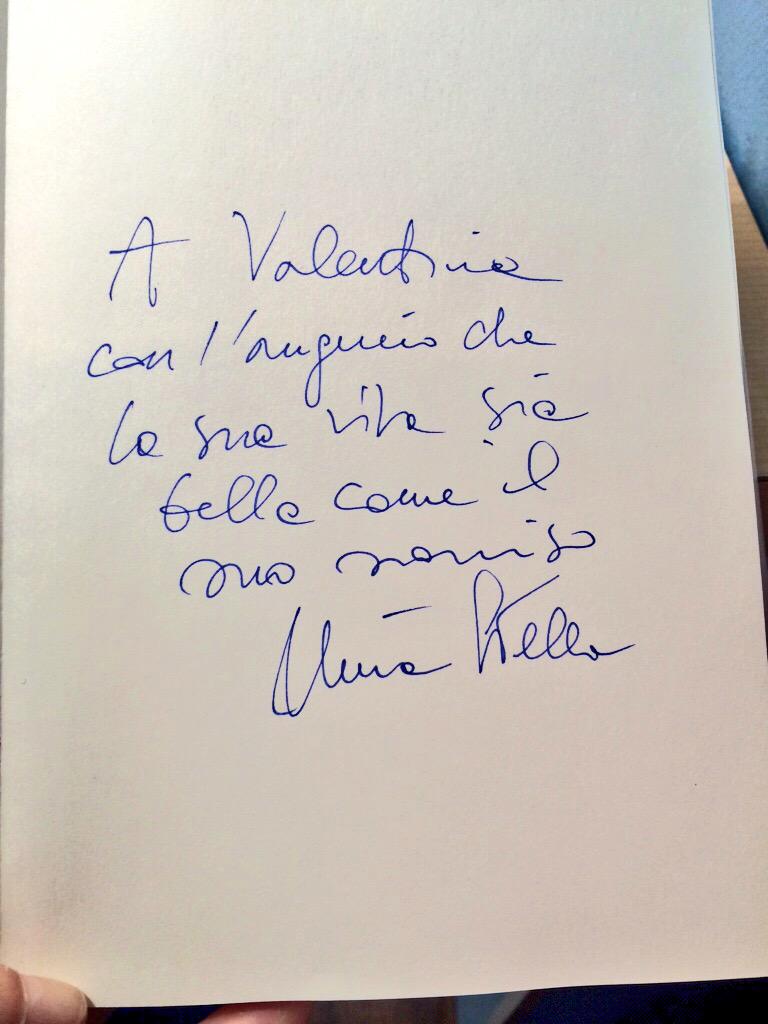 A Valentina
con l'augurio che
la sua vita sia
bella come il
suo sorriso
Stella